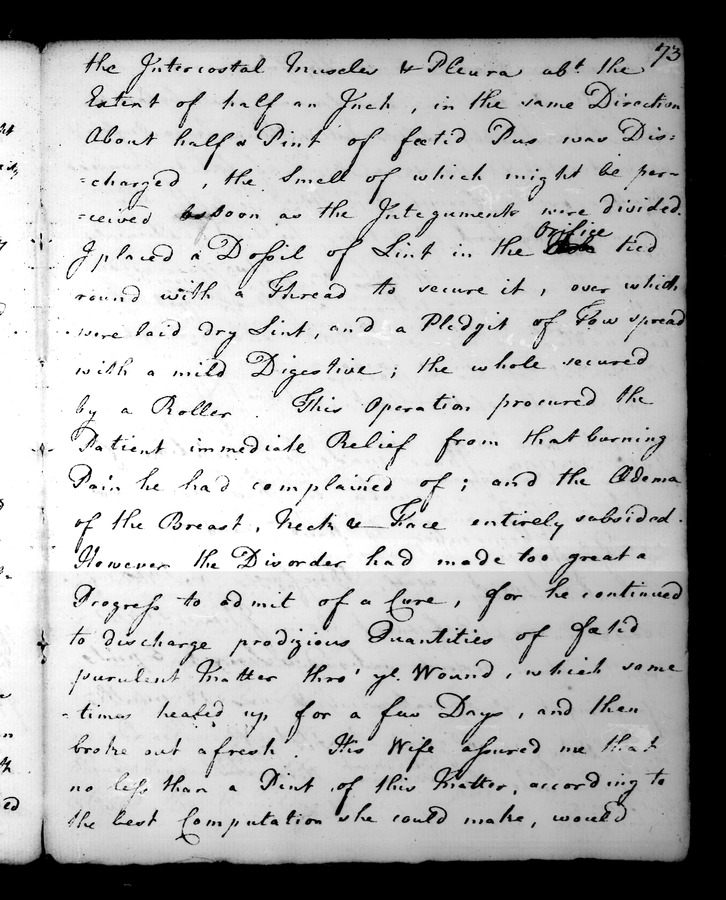 73
the Intercostal Muscles & Pleura abt. the
Extent of half an Inch, in the same Direction
About half a Pint of fœtid Pus was Dis:
:charged, the Smell of which might be per-
:ceived as soon as the Integuments were divided.
Orifize
I placed a Dossil of Lint in the tied
round with a Thread to secure it, over which
were laid dry Lint, and a Pledgit of Tow spread
with a mild Digestive; the whole secured
by a Roller. This Operation procured the
Patient immediate Relief from that burning
Pain he had complained of; and the Œdema
of the Breast, Neck & Face entirely subsided.
However the Disorder had made too great a
Progress to admit of a Cure, for he continued
to discharge prodigious Quantities of fœtid
purulent Matter thro' ye. Wound, which some
-times heal'd up for a few Days, and then
broke out afresh. His Wife assured me that
no less than a Pint of this Matter, according to
the best Computation she could make, would